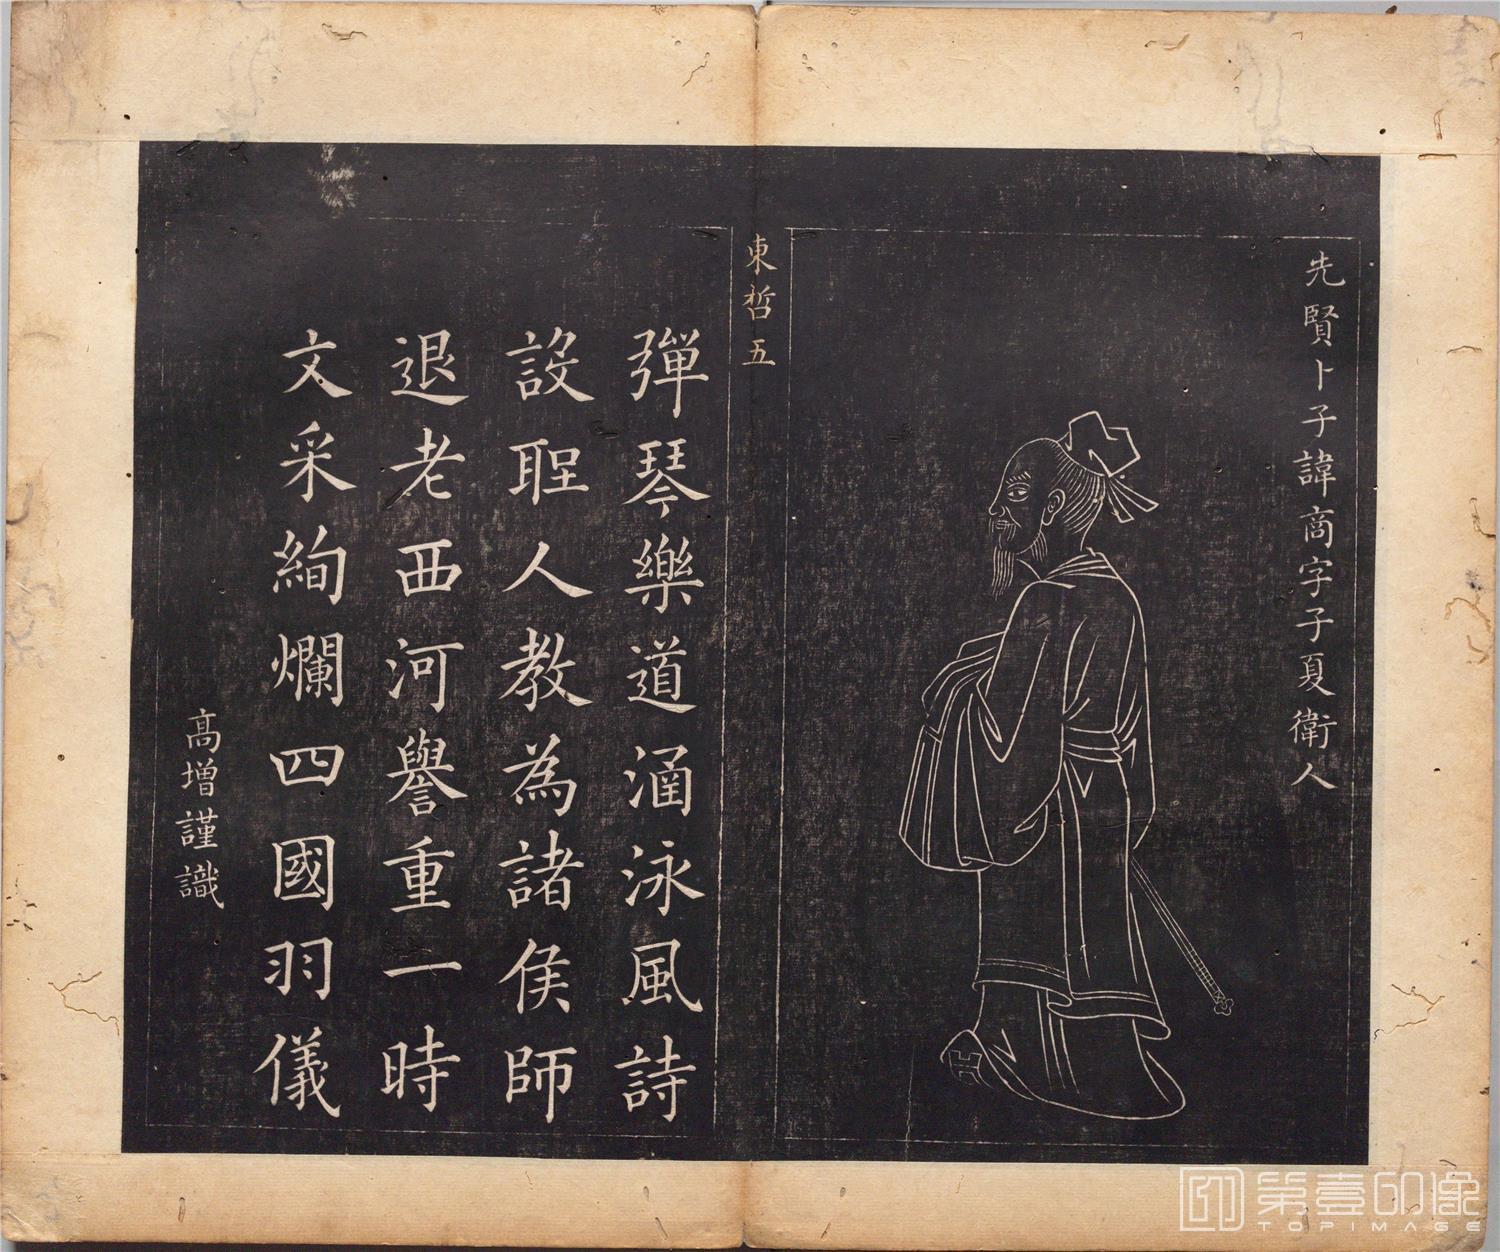 先賢卜子諱商字子夏衛人
東哲五
彈琴樂道涵泳風詩
設聖人教為諸侯師
退老西河譽重一時
文采絢爛四國羽儀
高增謹識
第壹印像
TOPIMAGE